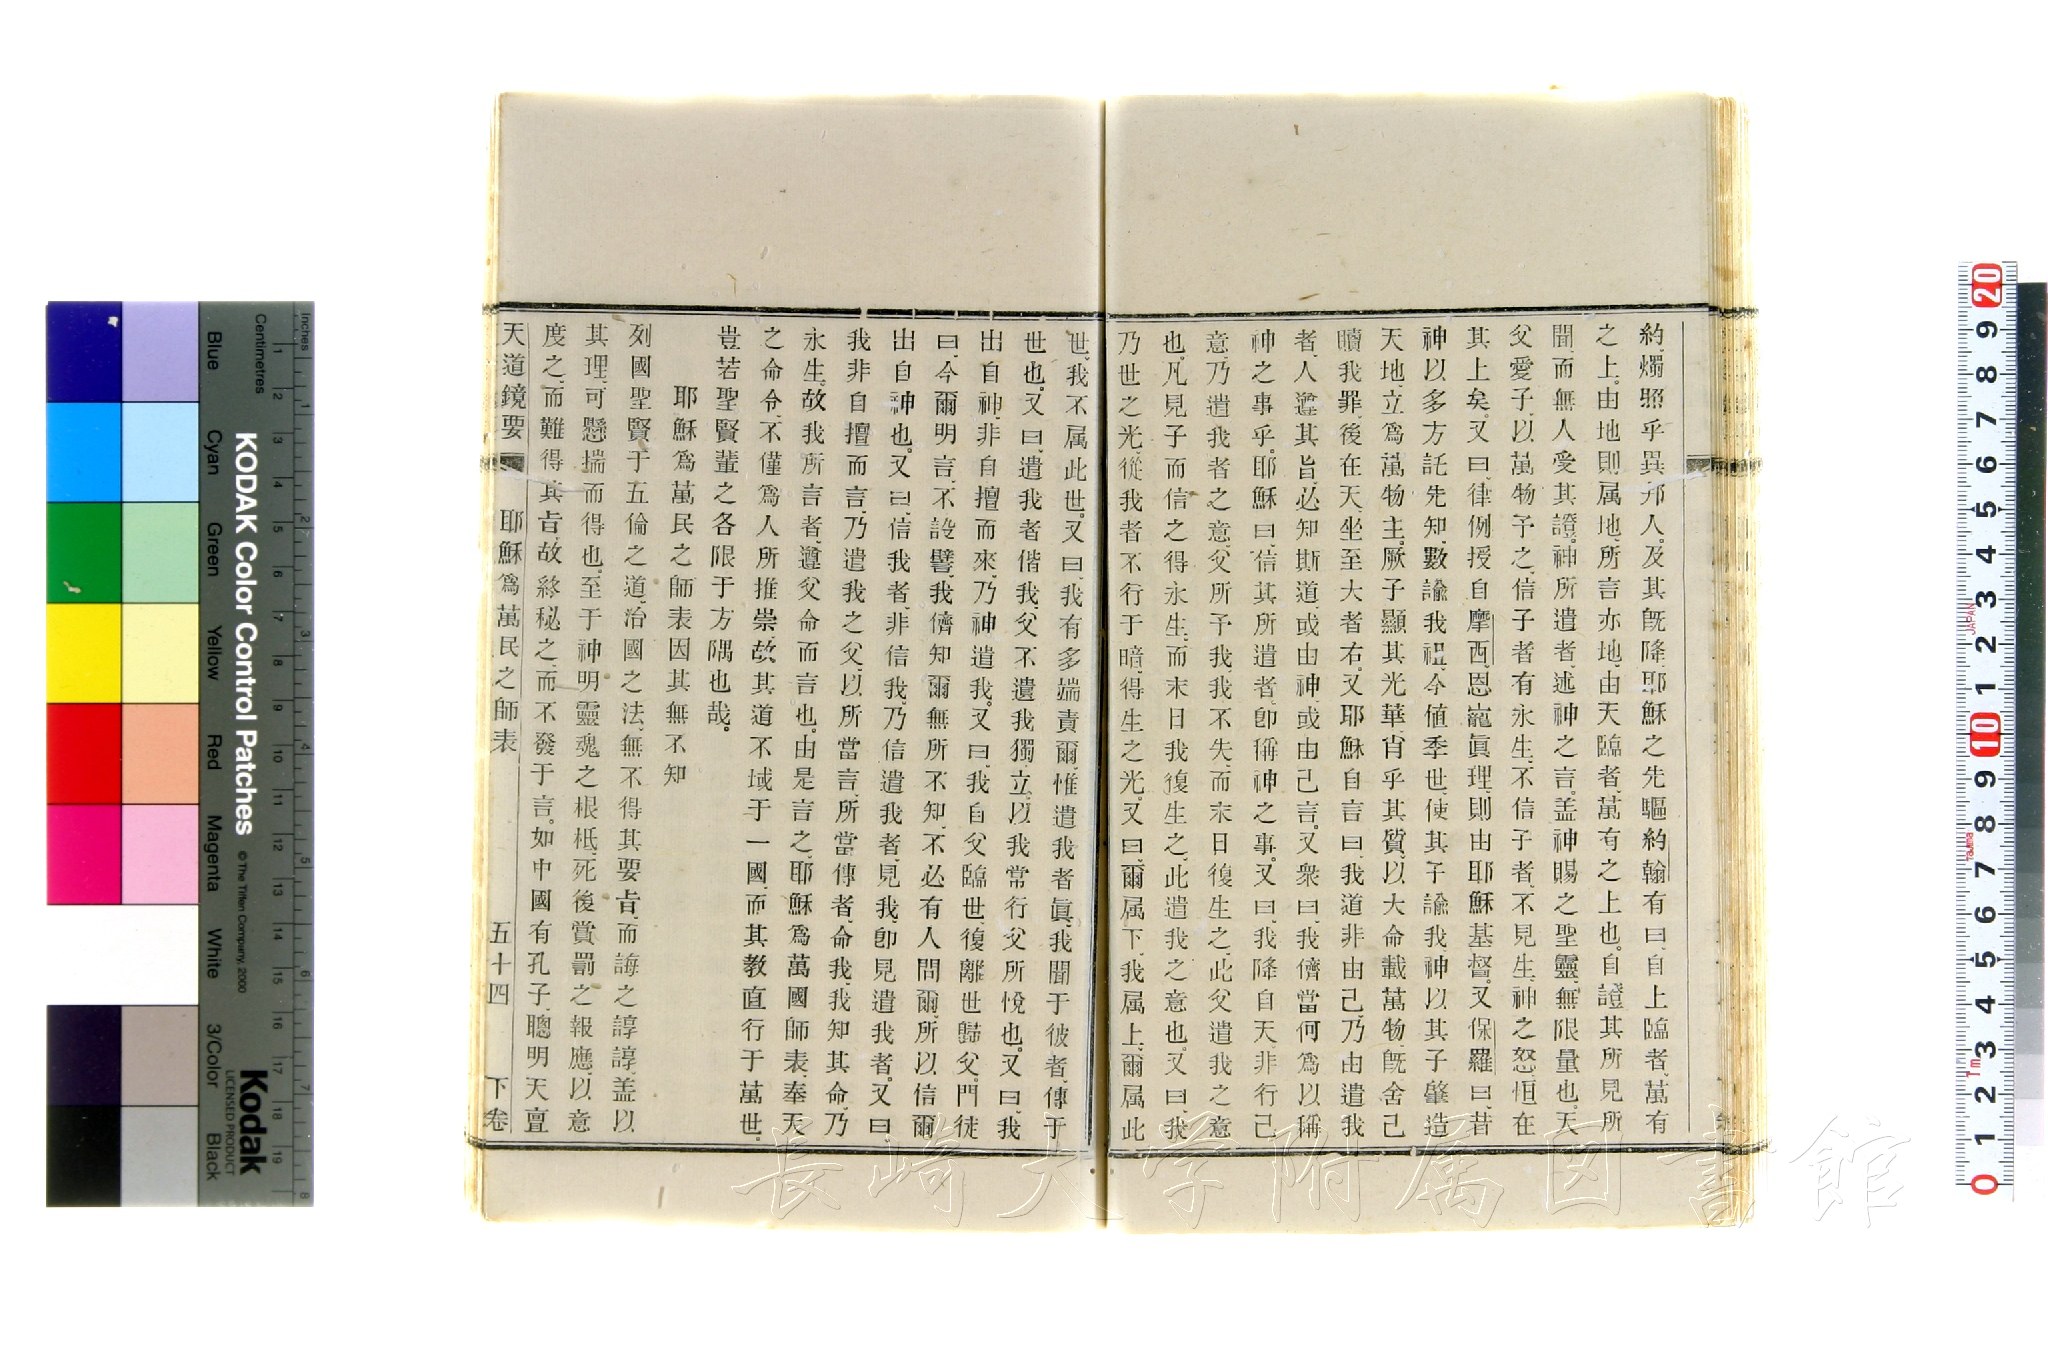 約、燭照乎異邦人。及其旣降、耶穌之先驅約翰有曰、自上臨者、萬有
之上。由地則属地、所言亦地、由天臨者、萬有之上也。自證其所見所
聞、而無人受其證。神所遺者、述神之言。盖神賜之聖靈、無限量也。天
父愛子、以萬物予之、信子者有永生、不信子者、不見生、神之怒、恒在
其上矣。又曰、律例授自摩西、恩寵眞理、則由耶穌基督。又保羅曰、昔
神以多方託先知、數諭我祖、今値季世、使其子諭我、神以其子肇造
天地、立爲萬物主。厥子顯其光華、肖乎其質、以大命載萬物、旣舍己
贖我罪、後在天、坐至大者右。又耶穌自言曰、我道非由己、乃由遣我
者、人遵其旨、必知斯道、或由神、或由己言。又衆曰、我儕當何爲以稱
神之事乎。耶穌曰、信其所遣者、卽稱神之事。又曰、我降自天、非行己
意、乃遣我者之意、父所予我、我不失、而末日復生之、此父遣我之意
也。凡見子而信之得永生、而末日我復生之、此遣我之意也。又曰、我
乃世之光、從我者不行于暗、得生之光。又曰、爾属下、我属上、爾属此
世、我不属此世。又曰、我有多端責爾、惟遣我者眞、我聞于彼者、傳于
世也。又曰、遣我者偕我、父不遺我獨立、以我常行父所悅也。又曰、我
出自神、非自擅而來、乃神遣我。又曰、我自父臨世、復離世歸父。門徒
曰、今爾明言、不設譬、我儕知爾無所不知、不必有人問爾、所以信爾
出自神也。又曰、信我者、非信我、乃信遣我者、見我、卽見遣我者。又曰、
我非自擅而言、乃遣我之父、以所當言、所當傳者、命我、我知其命、乃
永生。故我所言者、遵父命而言也。由是言之、耶穌爲萬國師表、奉天
之命令、不僅爲人所推崇、故其道不域于一國、而其敎直行于萬世、
豈若聖賢輩之各限于方隅也哉。
耶穌爲萬民之師表因其無不知
列國聖賢、于五倫之道、治國之法、無不得其要旨、而誨之諄諄、盖以
其理、可懸揣而得也。至于神明靈魂之根柢、死後賞罰之報應、以意
度之、而難得真旨、故終秘之、而不發于言。如中國有孔子、聰明天亶
天道鏡要 耶穌爲萬民之師表 五十四 下卷
長崎大学附属図書館
KODAK Color Control Patches
© The Tiffen Company, 2000
Kodak
LICENSED PRODUCT
Inches
Centimetres
Blue
Cyan
Green
Yellow
Red
Magenta
White
3/Color
Black